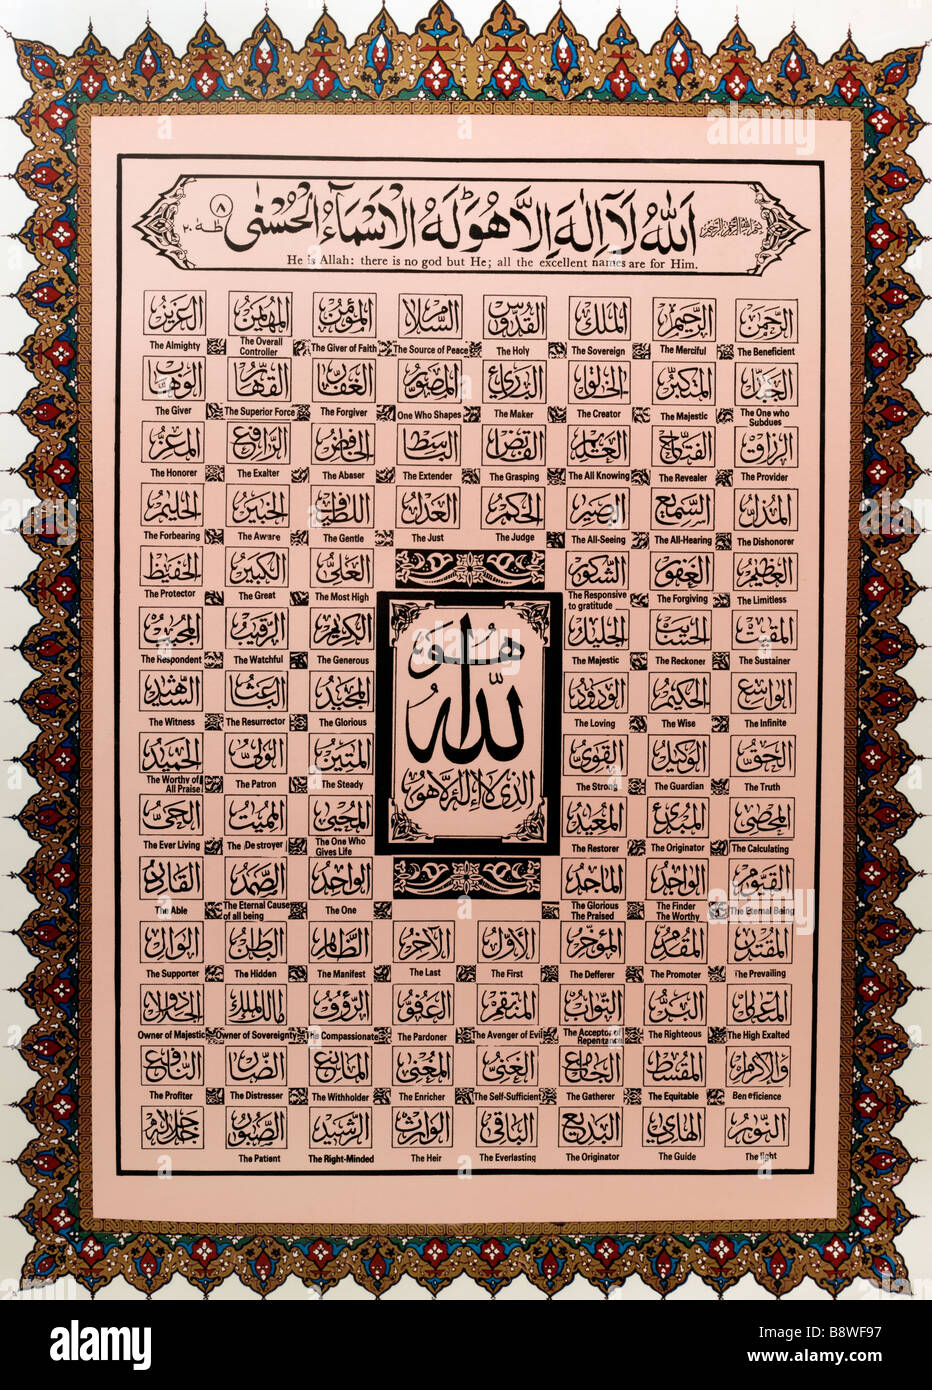 الله لا إله إلا هو له الأسماء الحسنى
طه ٨
٢٠
He is Allah: there is no god but He; all the excellent names are for Him.
الرحمن الرحيم الملك القدوس السلام المؤمن المهيمن العزيز
The Beneficent The Merciful The Sovereign The Holy The Source of Peace The Giver of Faith The Overall Controller The Almighty
الجبار المتكبر الخالق البارئ المصور الغفار القهار الوهاب
The One who Subdues The Majestic The Creator The Maker One Who Shapes The Forgiver The Superior Force The Giver
الرزاق الفتاح العليم القابض الباسط الخافض الرافع المعز
The Provider The Revealer The All Knowing The Grasping The Extender The Abaser The Exalter The Honorer
المذل السميع البصير الحكم العدل اللطيف الخبير الحليم
The Dishonorer The All-Hearing The All-Seeing The Judge The Just The Gentle The Aware The Forbearing
العظيم الغفور الشكور العلي الكبير الحفيظ
The Limitless The Forgiving The Responsive to gratitude The Most High The Great The Protector
المقيت الحسيب الجليل الكريم الرقيب المجيب
The Sustainer The Reckoner The Majestic The Generous The Watchful The Respondent
الواسع الحكيم الودود المجيد الباعث الشهيد
The Infinite The Wise The Loving The Glorious The Resurrector The Witness
الحق الوكيل القوي المتين الولي الحميد
The Truth The Guardian The Strong The Steady The Patron The Worthy of All Praise
المحصي المبدئ المعيد المحيي المميت الحي
The Calculating The Originator The Restorer The One Who Gives Life The Destroyer The Ever Living
القيوم الواجد الماجد الواحد الصمد القادر
The Eternal Being The Finder The Worthy The Glorious The Praised The One The Eternal Cause of all being The Able
هو
الله
الذي لا إله إلا هو
المقتدر المقدم المؤخر الأول الآخر الظاهر الباطن الوالي
The Prevailing The Promoter The Defferer The First The Last The Manifest The Hidden The Supporter
المتعالي البر التواب المنتقم العفو الرؤوف مالك الملك ذو الجلال
The High Exalted The Righteous The Acceptor of Repentance The Avenger of Evil The Pardoner The Compassionate Owner of Sovereignty Owner of Majestic
والإكرام المقسط الجامع الغني المغني المانع الضار النافع
Beneficience The Equitable The Gatherer The Self-Sufficient The Enricher The Withholder The Distresser The Profiter
النور الهادي البديع الباقي الوارث الرشيد الصبور جل جلاله
The light The Guide The Originator The Everlasting The Heir The Right-Minded The Patient
alamy
Image ID: B8WF97
www.alamy.com